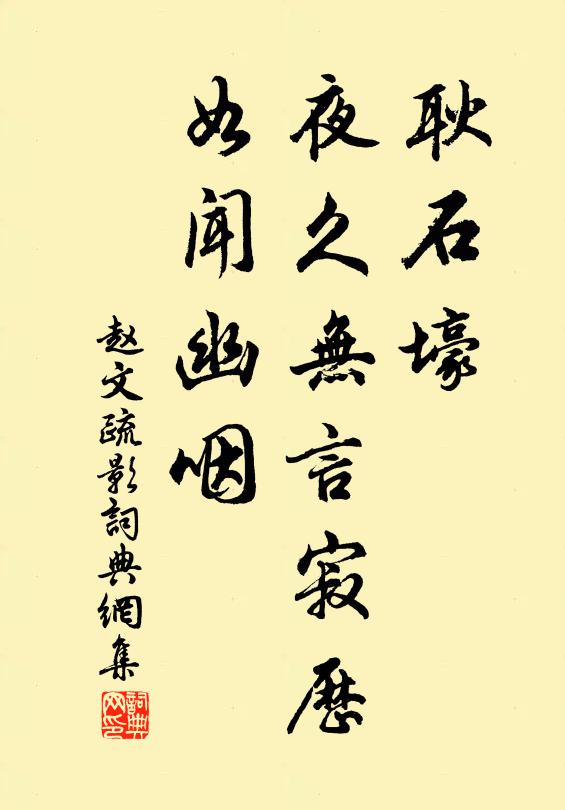 耿石壕
夜久無言寂歷
如聞幽咽
赵文疏影詞典網集
詞典网印